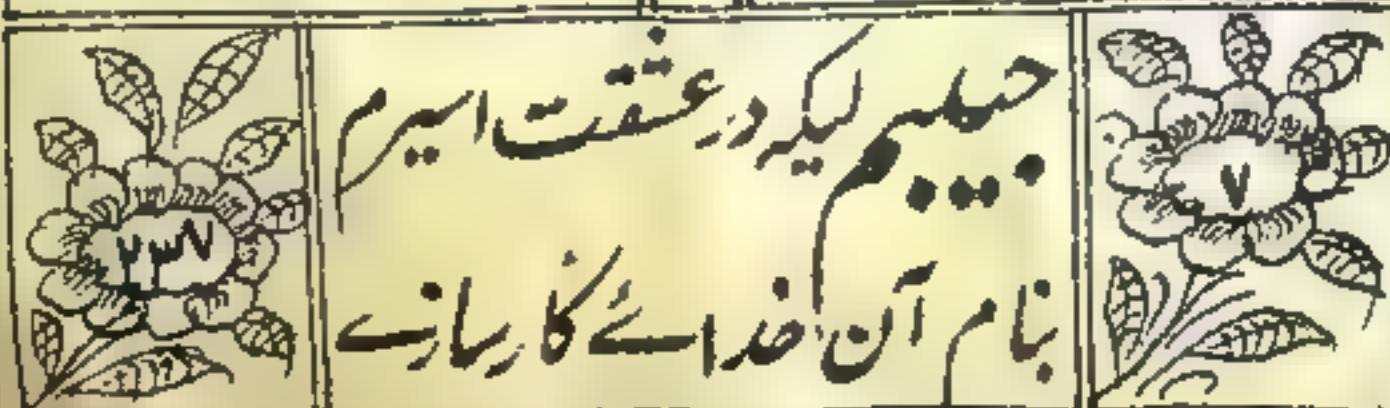 ۷
حبیبم لیکه در عشقت اسیرم
بنام آن خدائے کارسازے
۲۳۷